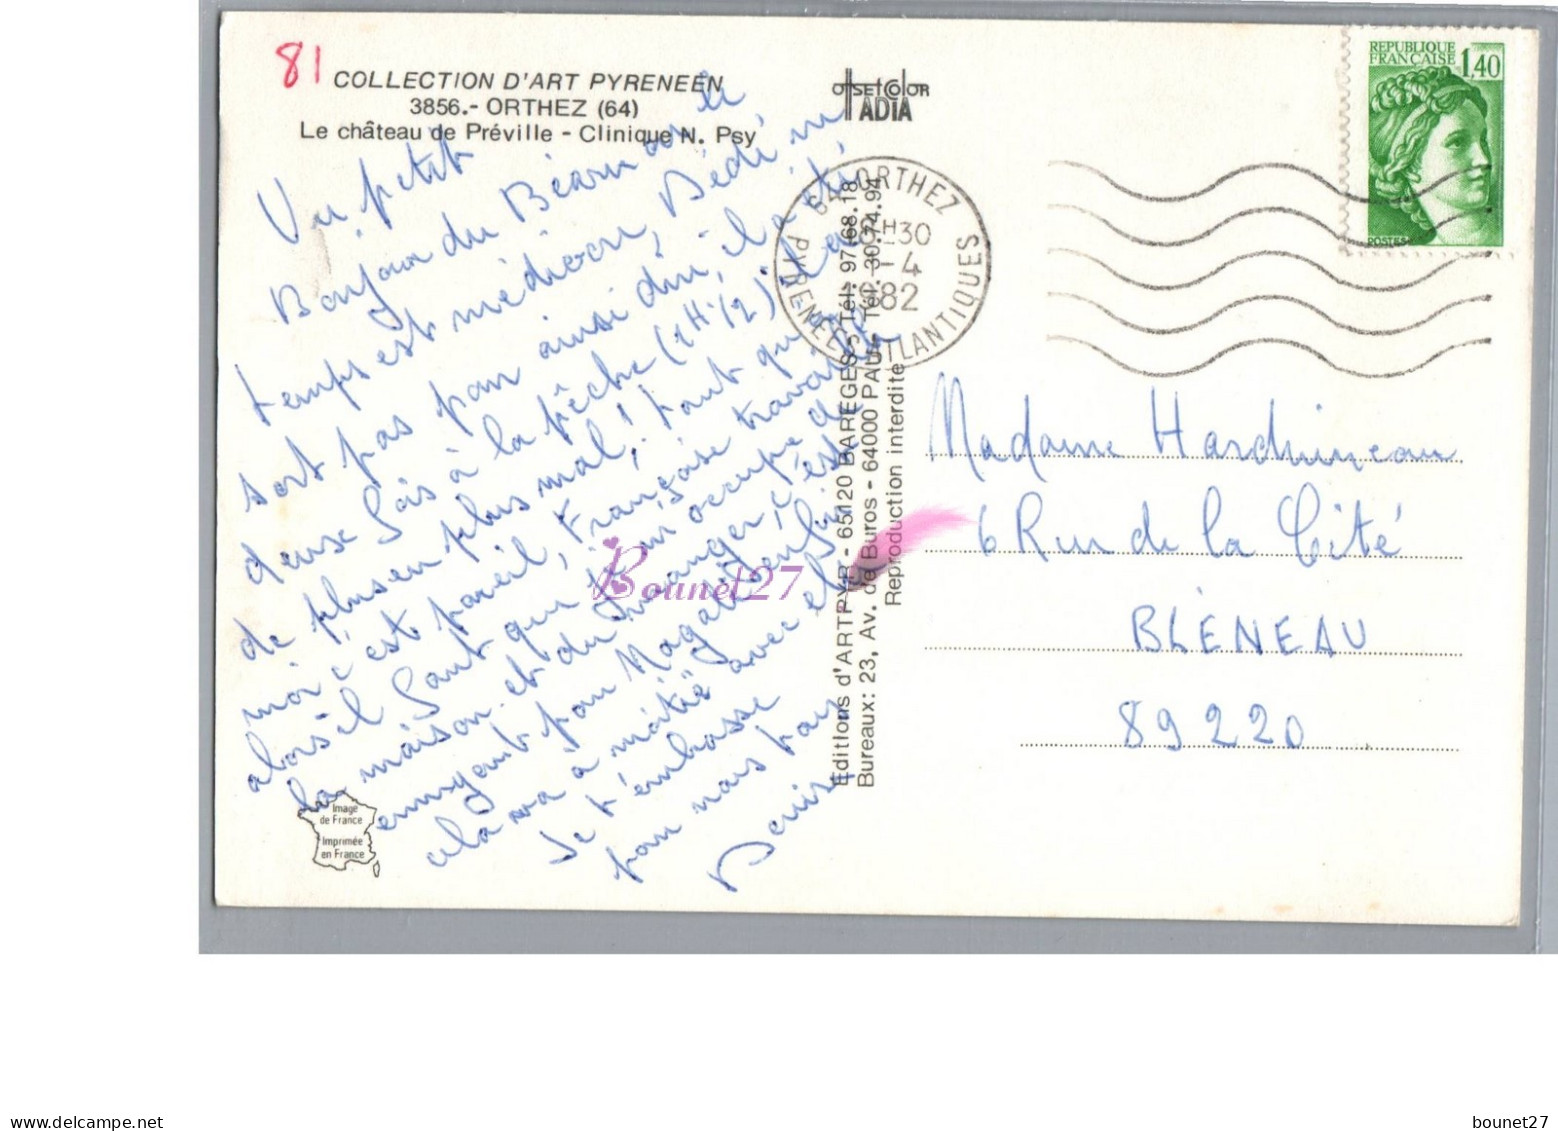 81
COLLECTION D'ART PYRENEEN
3856.- ORTHEZ (64)
Le château de Préville - Clinique N. Psy
offset color
ADIA
REPUBLIQUE
FRANÇAISE 1,40
POSTES
64 ORTHEZ
H30
- 4
82
PYRENEES ATLANTIQUES
Un petit
Bonjour du Béarn où le
temps est médiocre, Dédé ne
sort pas pour ainsi dire, il a été
deux fois à la pêche (1H 1/2) il a
de plus en plus mal! tant qu'à
moi c'est pareil, Françoise travaille
alors il faut que je m'occupe de
la maison et du manger, c'est
ennuyant pour Magali enfin
cela va à moitié avec et
Je t'embrasse
pour nous tous
Denise
Editions d'ARTPYR - 65120 BAREGES - Tél. 97.68.18
Bureaux: 23, Av. de Buros - 64000 PAU - Tél. 30.74.94
Reproduction interdite
Madame Hardhuineau
6 Rue de la Cité
BLÉNEAU
89220
Image
de France
Imprimée
en France
Bounet27
bounet27